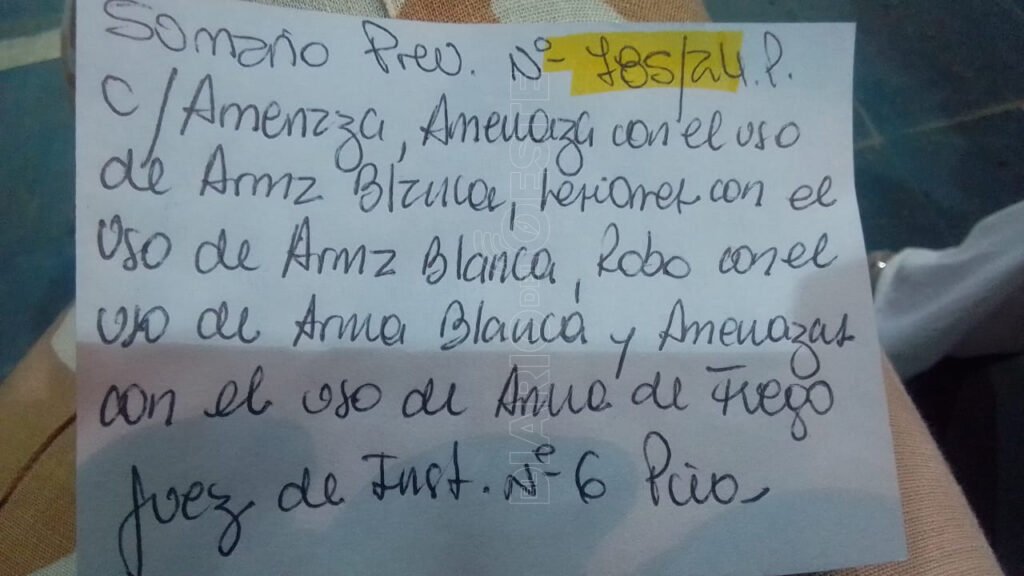 Somaño Prev. Nº 785/24.P.
C/Amenzza, Amenaza con el uso
de Arma Blanca, lesiones con el
uso de Arma Blanca, Robo con el
uso de Arma Blanca y Amenazas
con el uso de Arma de Fuego
Juez de Inst. Nº 6 Pcio
DIARIODELESTE